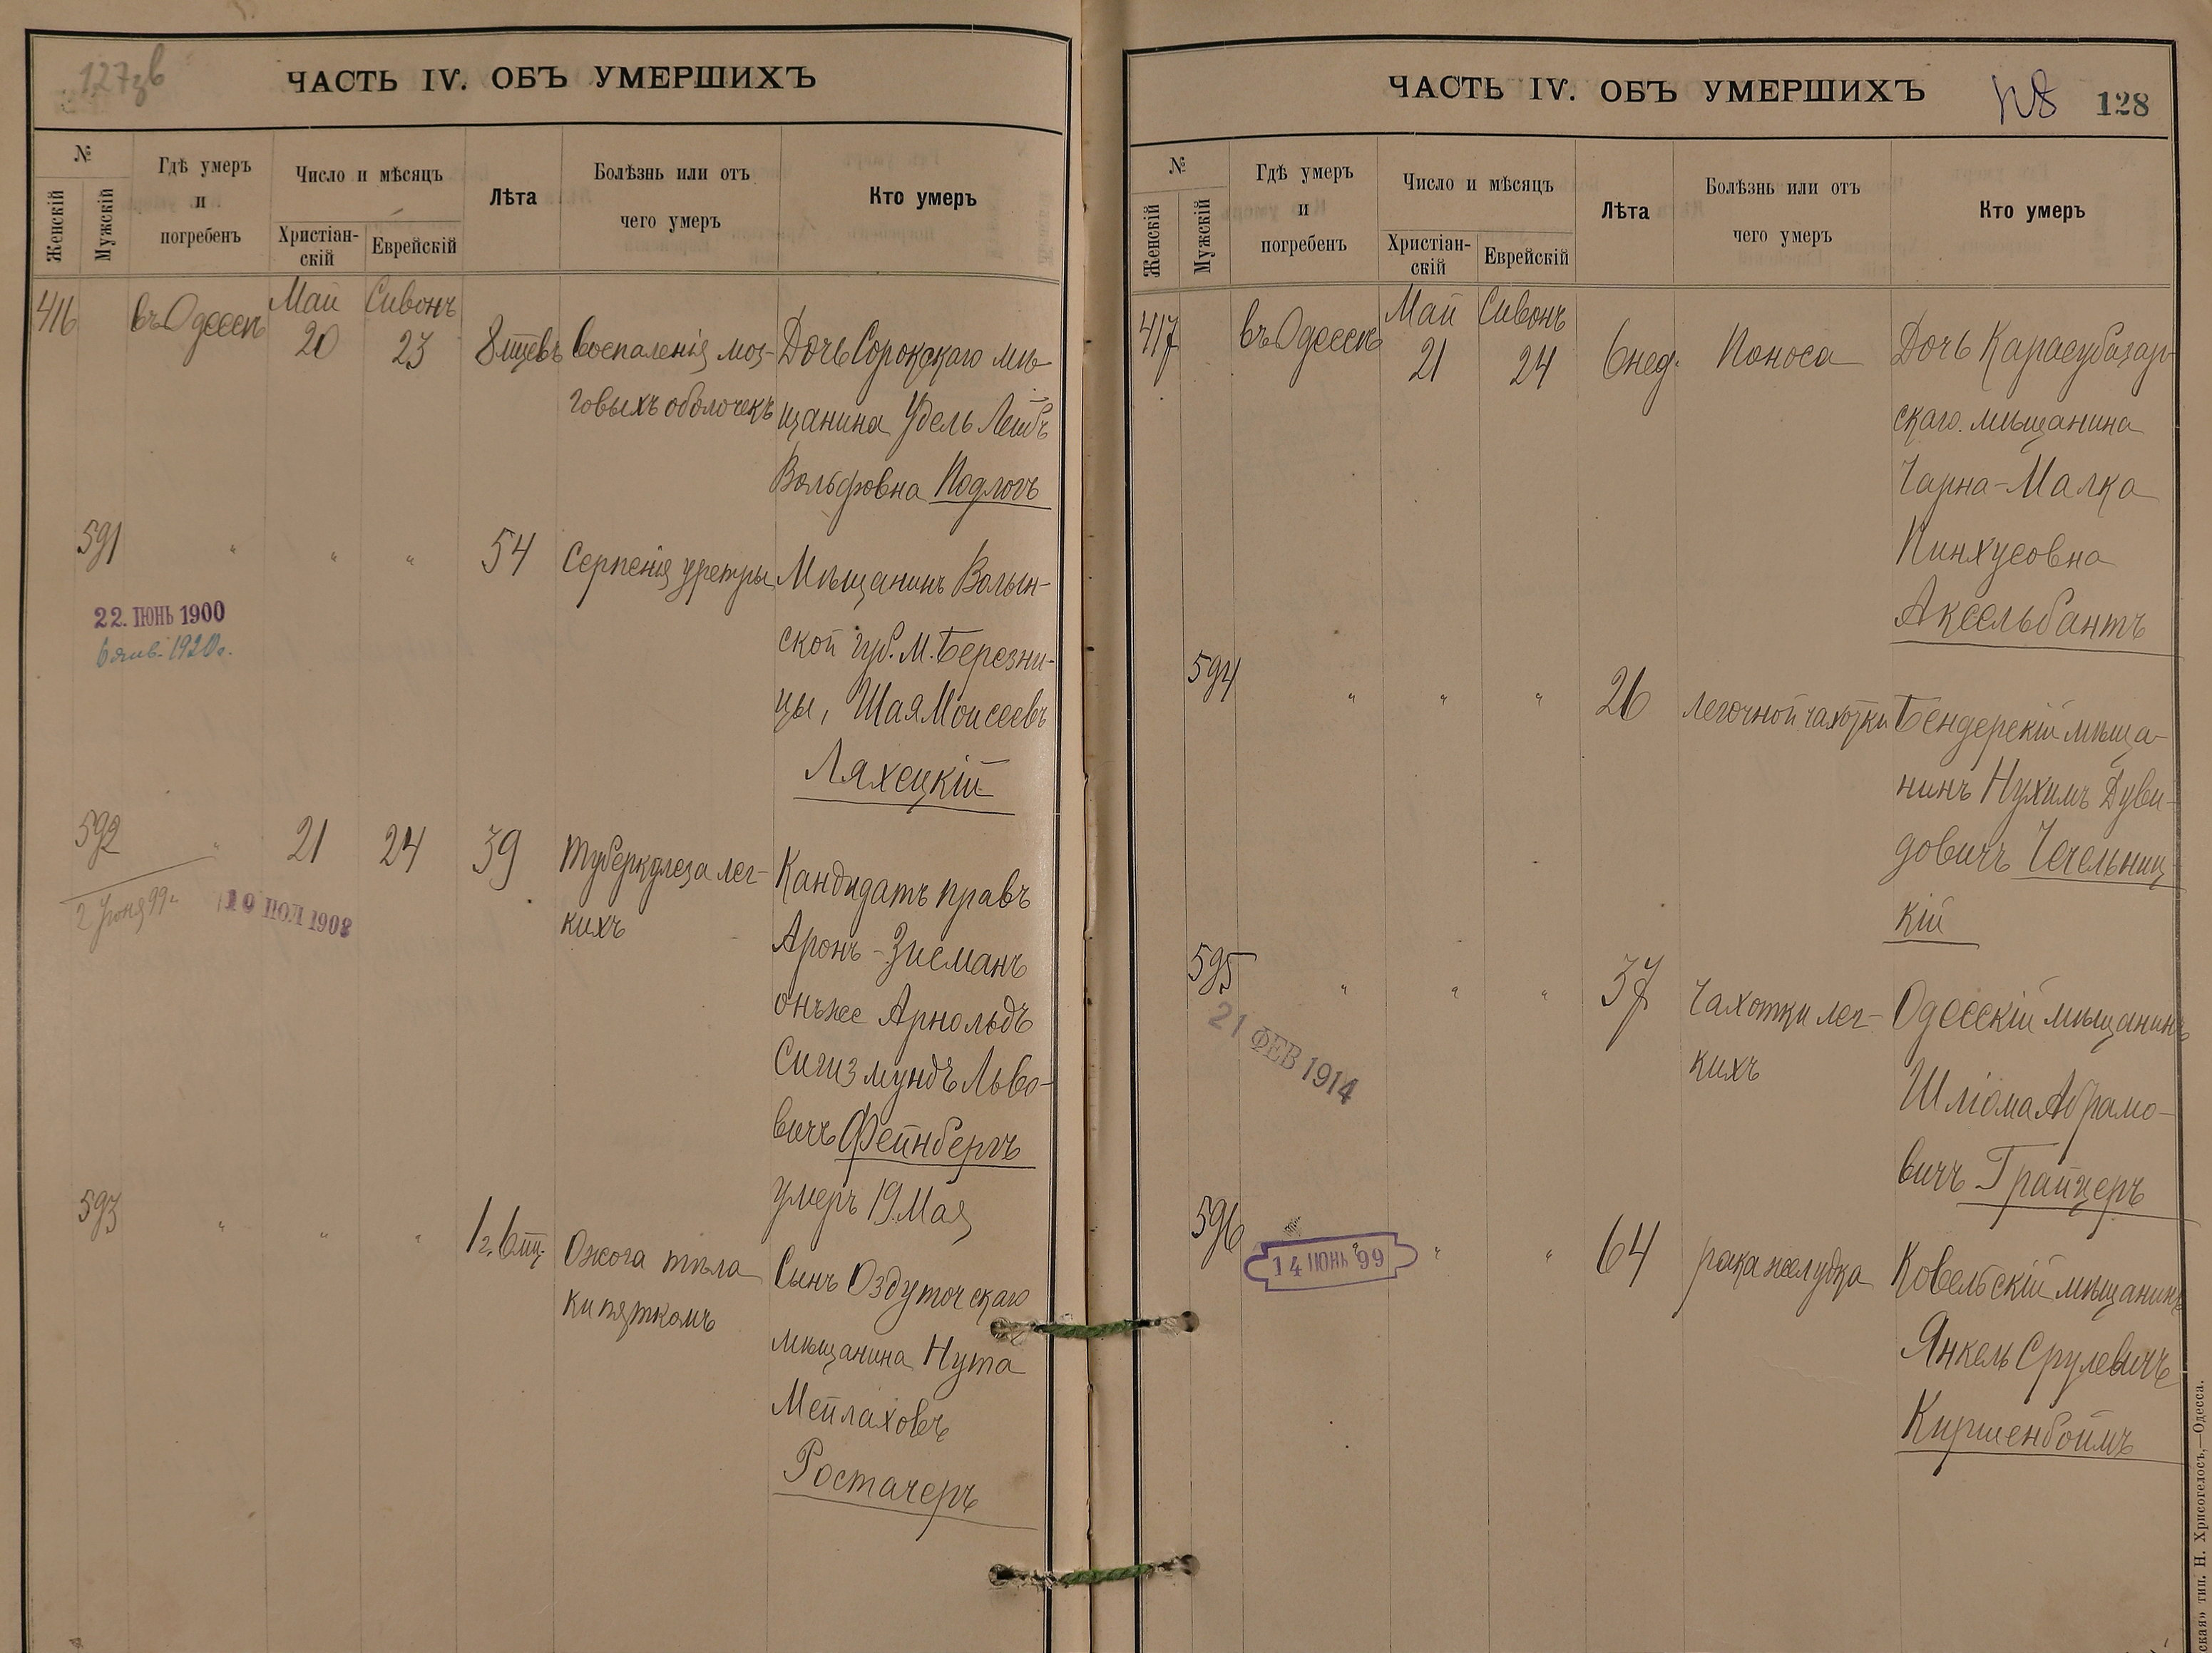 127зв
ЧАСТЬ IV. ОБЪ УМЕРШИХЪ
№
Женскій
Мужскій
Гдѣ умеръ
и
погребенъ
Число и мѣсяцъ
Христіан-
скій
Еврейскій
Лѣта
Болѣзнь или отъ
чего умеръ
Кто умеръ
416
въ Одессѣ
Май
20
Сивонъ
23
8 мцевъ
Воспаленія моз-
говыхъ оболочекъ
Дочь Сорокскаго мѣ-
щанина Удель Лейбъ
Вольфовна Подлогъ
591
"
"
"
54
Мѣщанинъ Волын-
ской губ. М. Березни-
цы, Шая Моисеевъ
Ляхецкій
22. ІЮНЬ 1900
6 янв. 1920 г.
592
"
21
24
39
Туберкулеза лег-
кихъ
Кандидатъ правъ
Аронъ-Зисманъ
онъже Арнольдъ
Сигизмундъ Льво-
вичъ Фейнбергъ
умеръ 19 Мая
2 Іюня 99 г.
19 ІЮЛ 1908
593
"
"
"
1 г. 6 мц.
Ожога тѣла
кипяткомъ
Сынъ Оздуточскаго
мѣщанина Нута
Мейлаховъ
Ростачеръ
ЧАСТЬ IV. ОБЪ УМЕРШИХЪ
128
128
№
Женскій
Мужскій
Гдѣ умеръ
и
погребенъ
Число и мѣсяцъ
Христіан-
скій
Еврейскій
Лѣта
Болѣзнь или отъ
чего умеръ
Кто умеръ
417
въ Одессѣ
Май
21
Сивонъ
24
6 нед.
Поноса
Дочь Карасубазар-
скаго мѣщанина
Чарна-Малка
Пинхусовна
Аксельбантъ
594
"
"
"
26
легочной чахотки
Бендерскій мѣща-
нинъ Нухимъ Дуви-
довичъ Чечельниц-
кій
595
"
"
"
37
Чахотки лег-
кихъ
Одесскій мѣщанинъ
Шліома Абрамо-
вичъ Грайцеръ
21 ФЕВ 1914
596
"
"
"
64
рака желудка
Ковельскій мѣщанинъ
Янкель Срулевичъ
Киршенбоймъ
14 ІЮНЬ 99
ская» тип. Н. Хрисогелосъ,—Одесса.